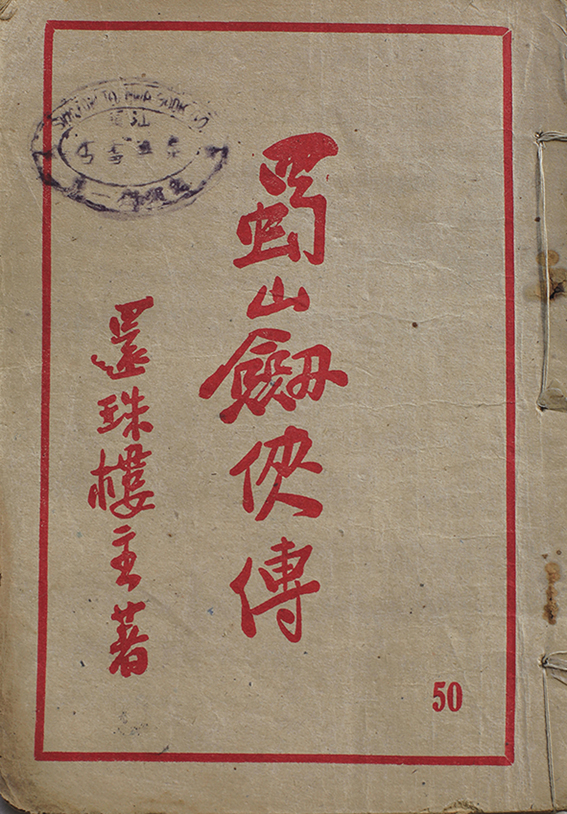 蜀山劔俠傳
還珠樓主著
50